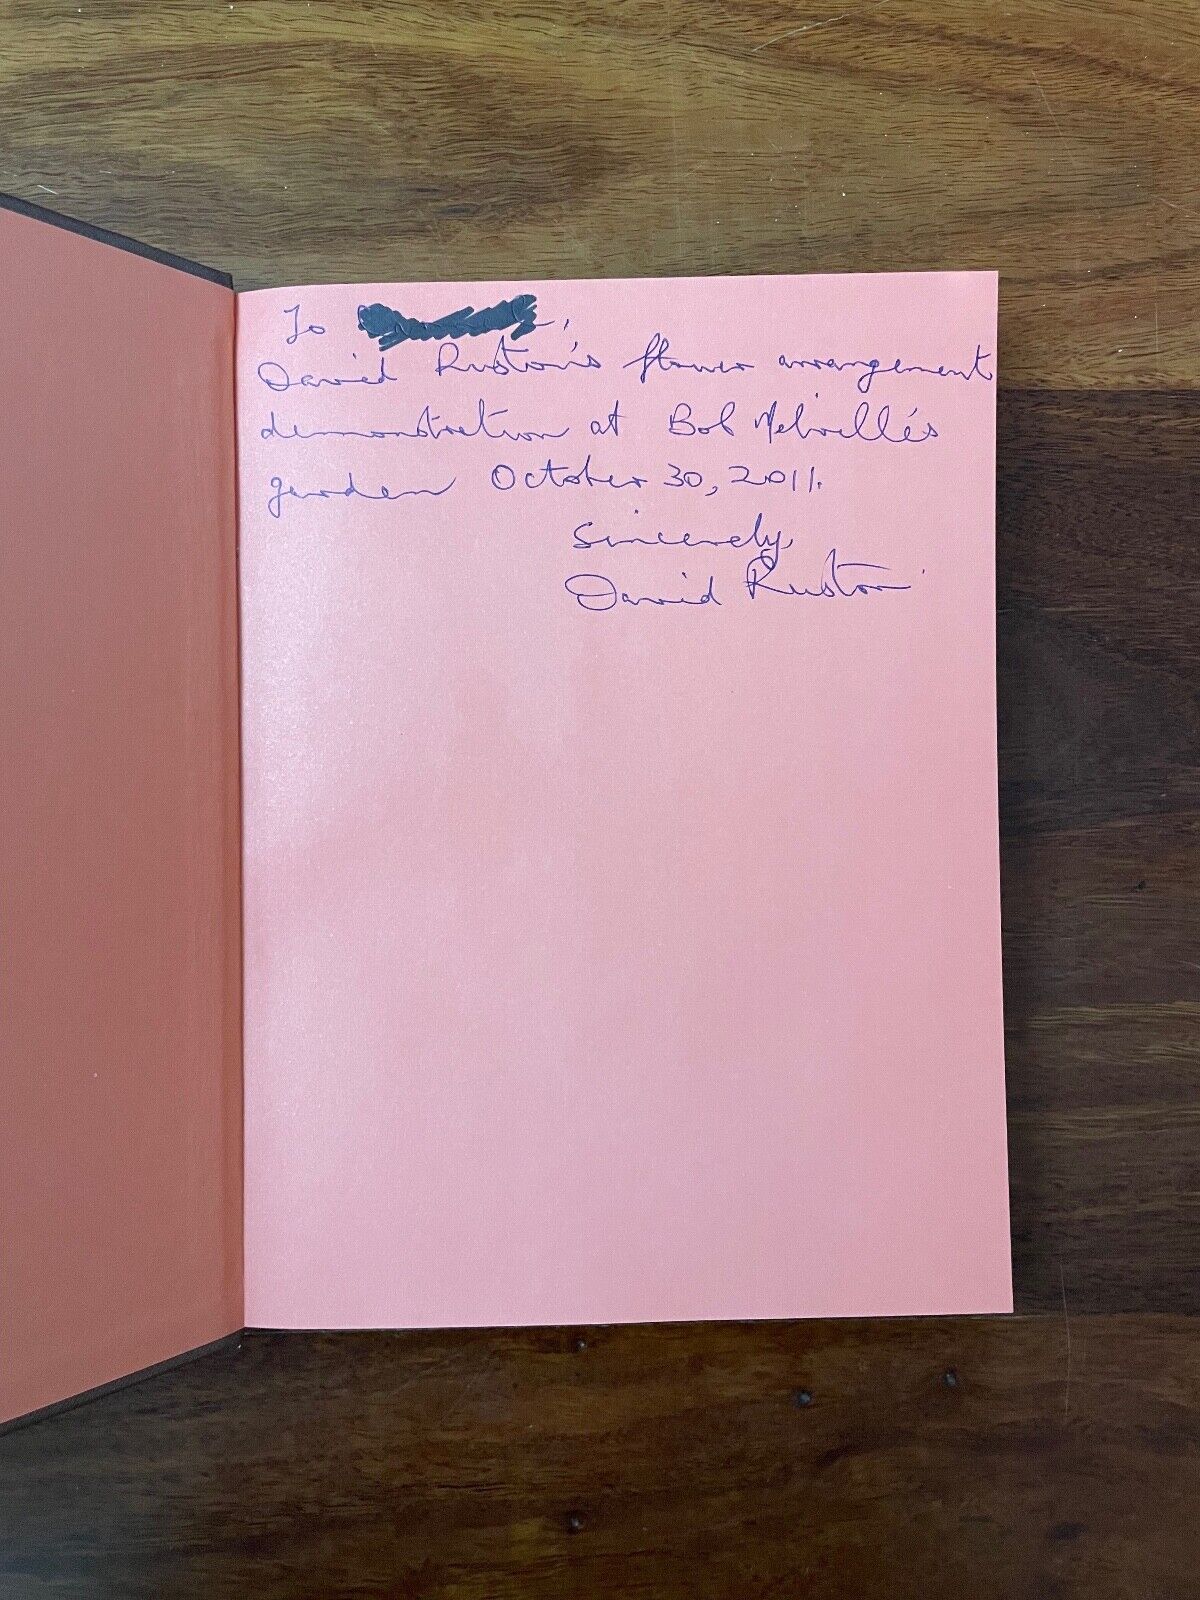 To
David Ruston's flower arrangement
demonstration at Bob Melville's
garden October 30, 2011.
Sincerely
David Ruston